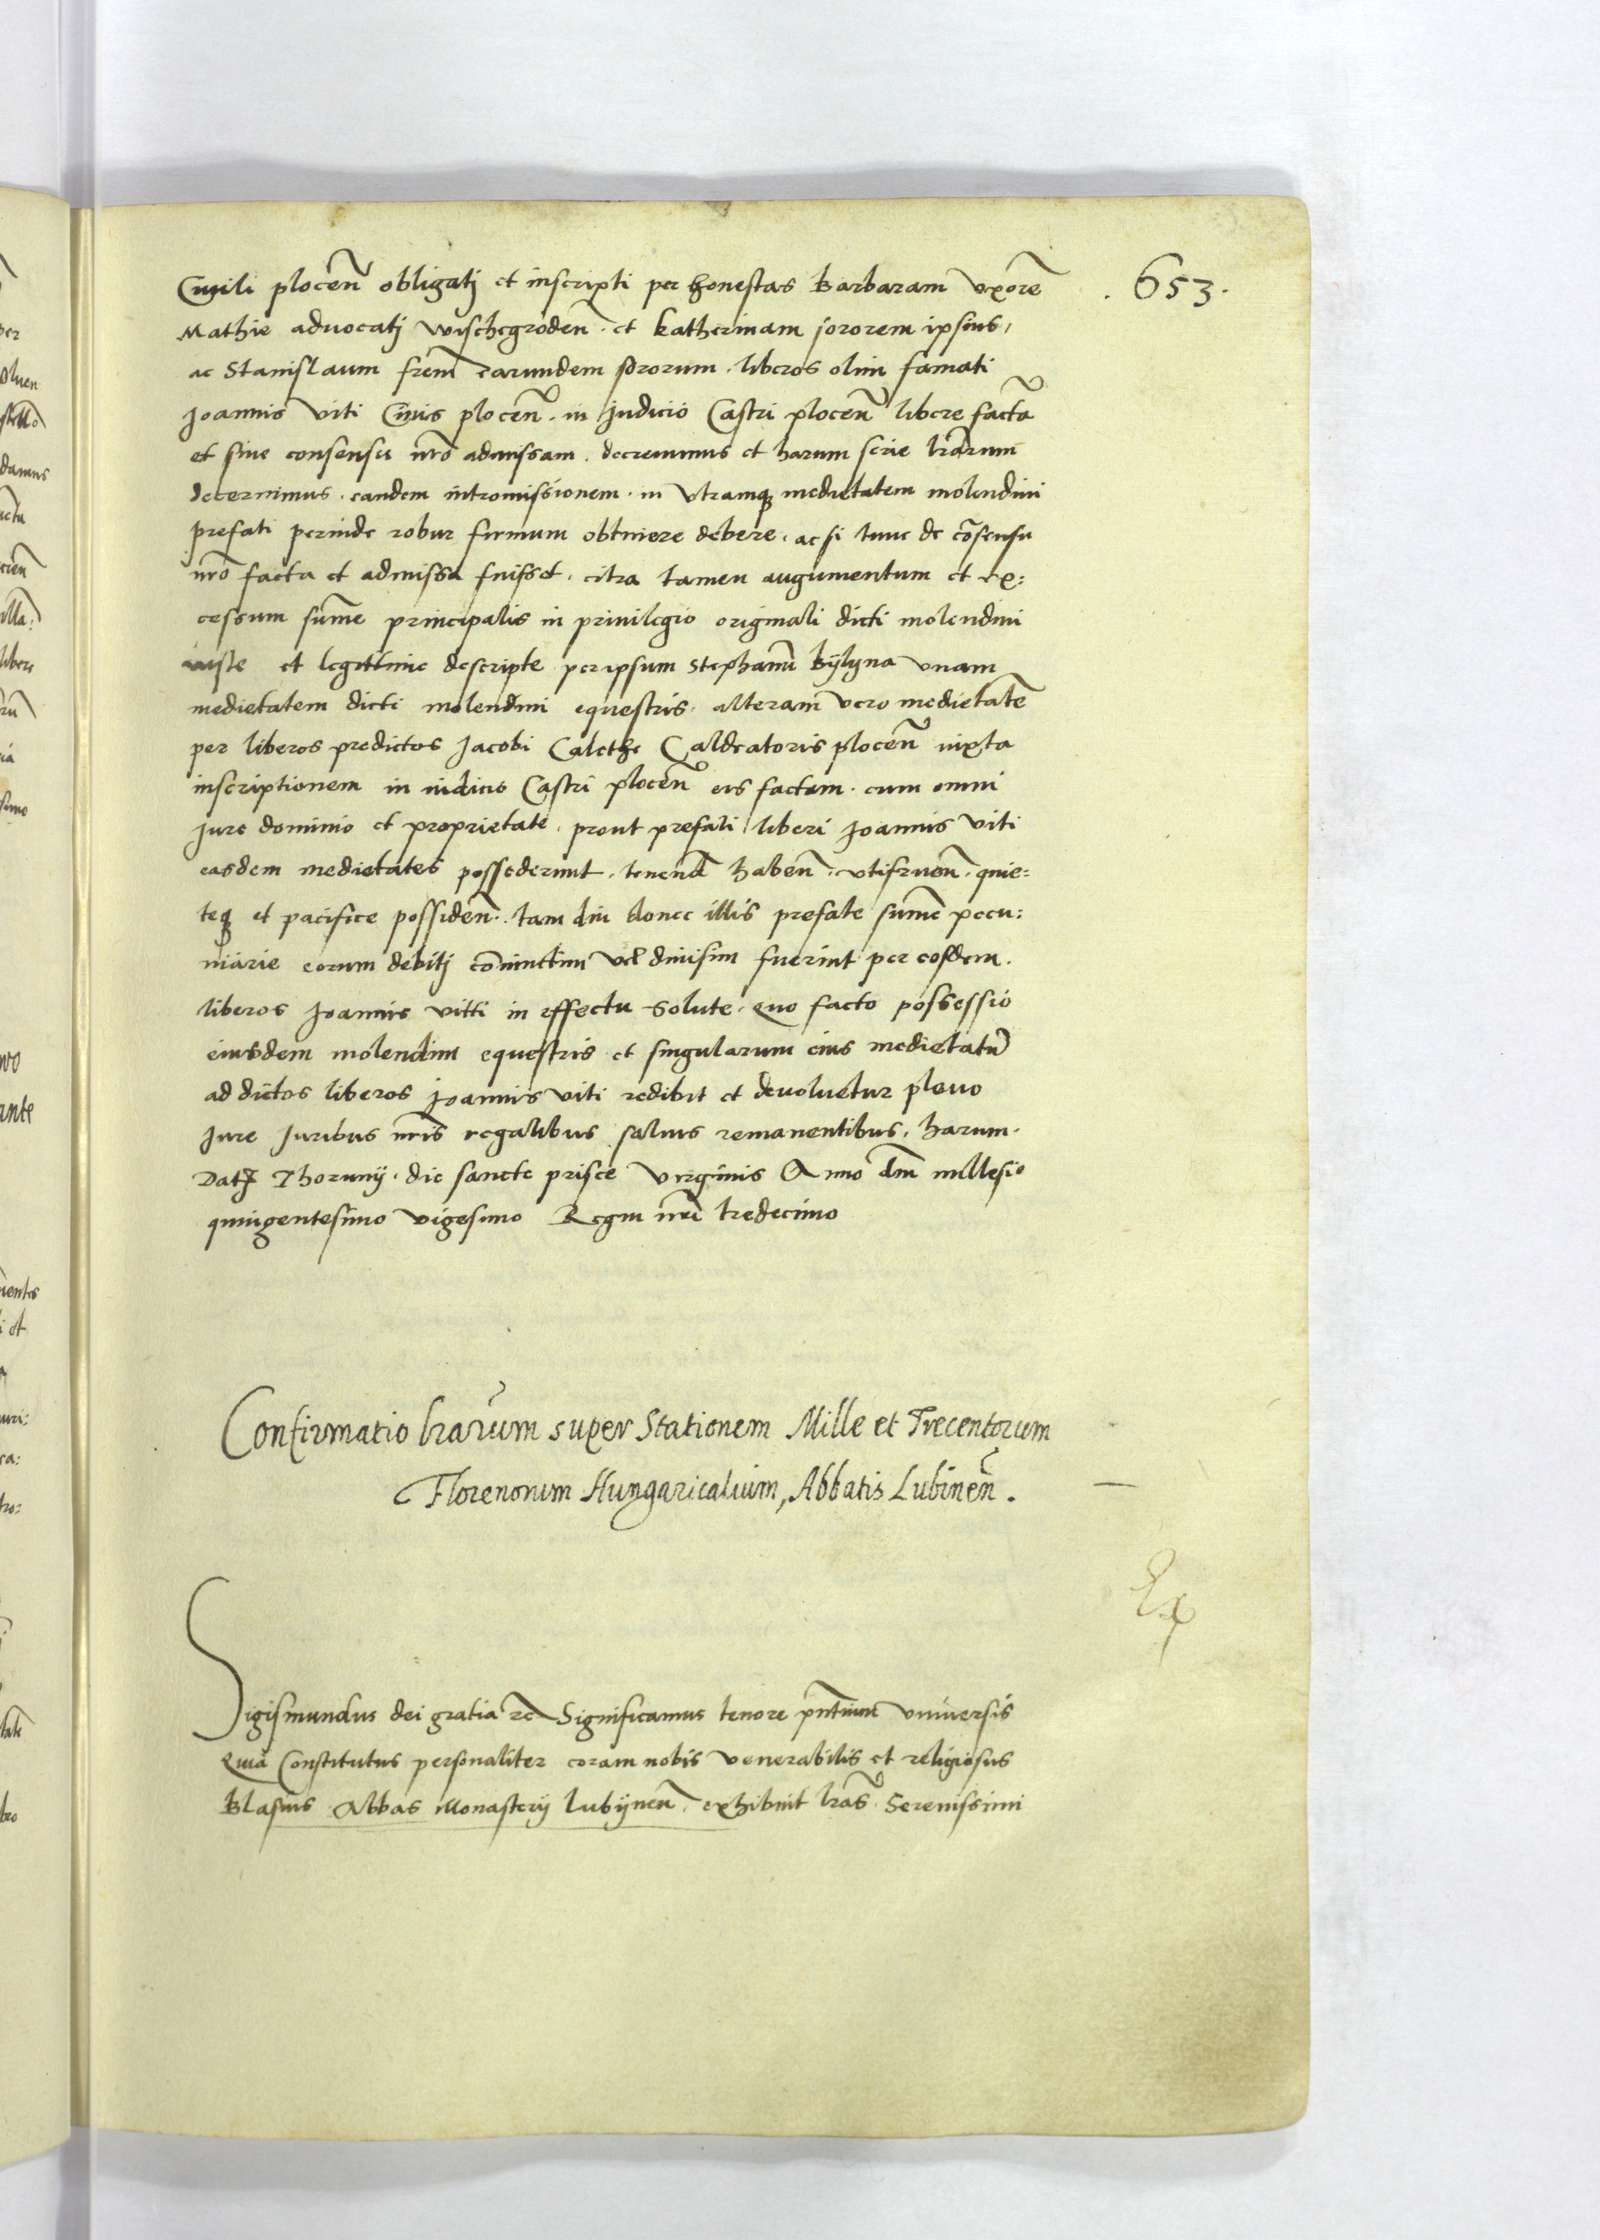 .653.
Civili plocen̄ obligatj et inscripti per honestas Barbaram vxorē
Mathie advocatj wischegroden̄. et Katherinam sororem ipsius,
ac Stanislaum frēm earundem sororum. liberos olim famati
Joannis Viti Civis plocen̄. in Judicio Castri plocen̄ libere factā
et sine consensu nrō admissam. decrevimus et harum serie lrārum
decernimus. eandem intromissionem. in vtramq medietatem molendini
prefati perinde robur firmum obtinere debere. ac si tunc de cōsensu
nrō facta et admissa fuisset. citra tamen augumentum et ex:
cessum sum̄e principalis in privilegio originali dicti molendini
iuste et legittime descripte per ipsum Stephanū Bijlyna vnam
medietatem dicti molendini equestris. alteram vero medietatē
per liberos predictos Jacobi Calethe Caldeatoris plocen̄ iuxta
inscriptionem in iudicio Castri plocen̄ eis factam. cum omni
Jure dominio et proprietate. prout prefati liberi Joannis Viti
easdem medietates possederunt. tenend̄ haben̄. vtifruen̄. quie=
teq et pacifice possiden̄. tam diu donec illis prefate sum̄e pecu:
niarie eorum debitj cōniunctim vel divisim fuerint per eosdem.
liberos Joannis vitti in effectu Solute. Quo facto possessio
eiusdem molendini equestris et singularum eius medietatū
ad dictos liberos Joannis viti redibit et devoluetur pleno
Jure Juribus nrīs regalibus salvis remanentibus. harum.
Dat Thorunij. die sancte prisce virginis Anno dn̄i millesio
quingentesimo vigesimo Regni nrī tredecimo
Confirmatio lrarum super Stationem Mille et Trecentorum
Florenorum Hungaricalium, Abbatis Lubinen̄.
Ex
Sigismundus dei gratia rc Significamus tenore pn̄tium vniversis
Quia Constitutus personaliter coram nobis venerabilis et religiosus
Blasius Abbas Monasterij lubijnen̄. exhibuit lrās. Serenissimi